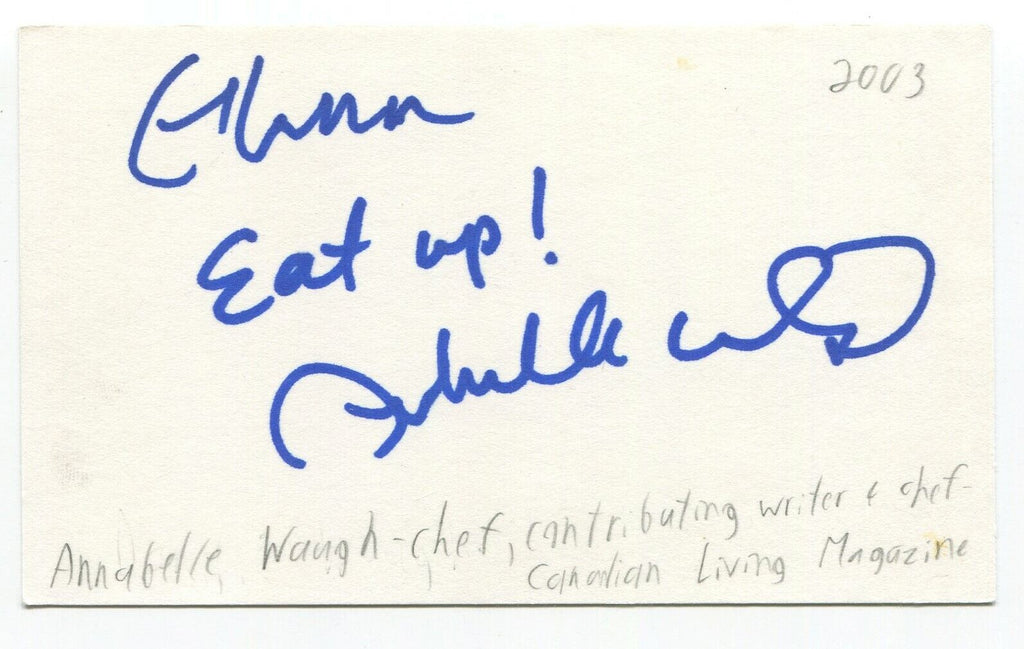 2003
Ethan
Eat up!
Annabelle Waugh
Annabelle Waugh - chef, contributing writer & chef -
Canadian Living Magazine